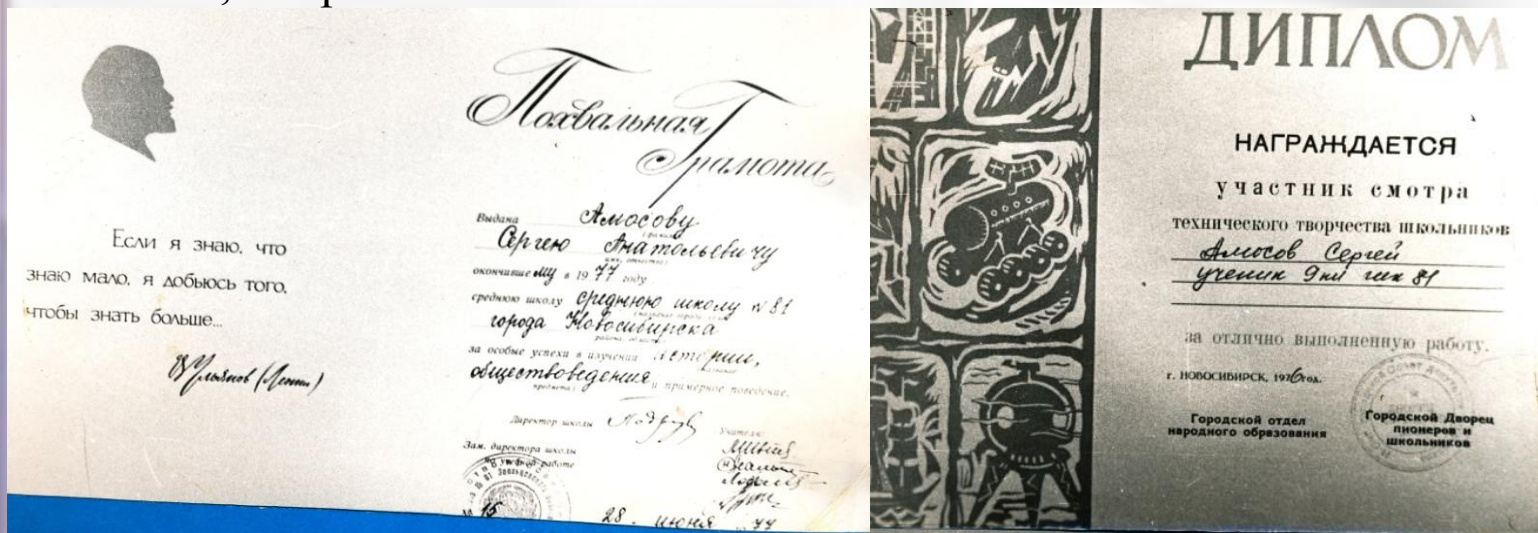 Если я знаю, что
знаю мало, я добьюсь того,
чтобы знать больше...
В Ульянов (Ленин)
Похвальная
Грамота
Выдана Амосову
Сергею Анатольевичу
окончившему в 1977 году
среднюю школу среднюю школу №81
города Новосибирска
за особые успехи в изучении истории,
обществоведения и примерное поведение.
Директор школы
Зам. директора школы
по учебной работе
Учителя:
28 июня 77
ДИПЛОМ
НАГРАЖДАЕТСЯ
участник смотра
технического творчества школьников
Амосов Сергей
ученик шк 81
за отлично выполненную работу.
г. НОВОСИБИРСК, 1976 год.
Городской отдел
народного образования
Городской Дворец
пионеров и
школьников